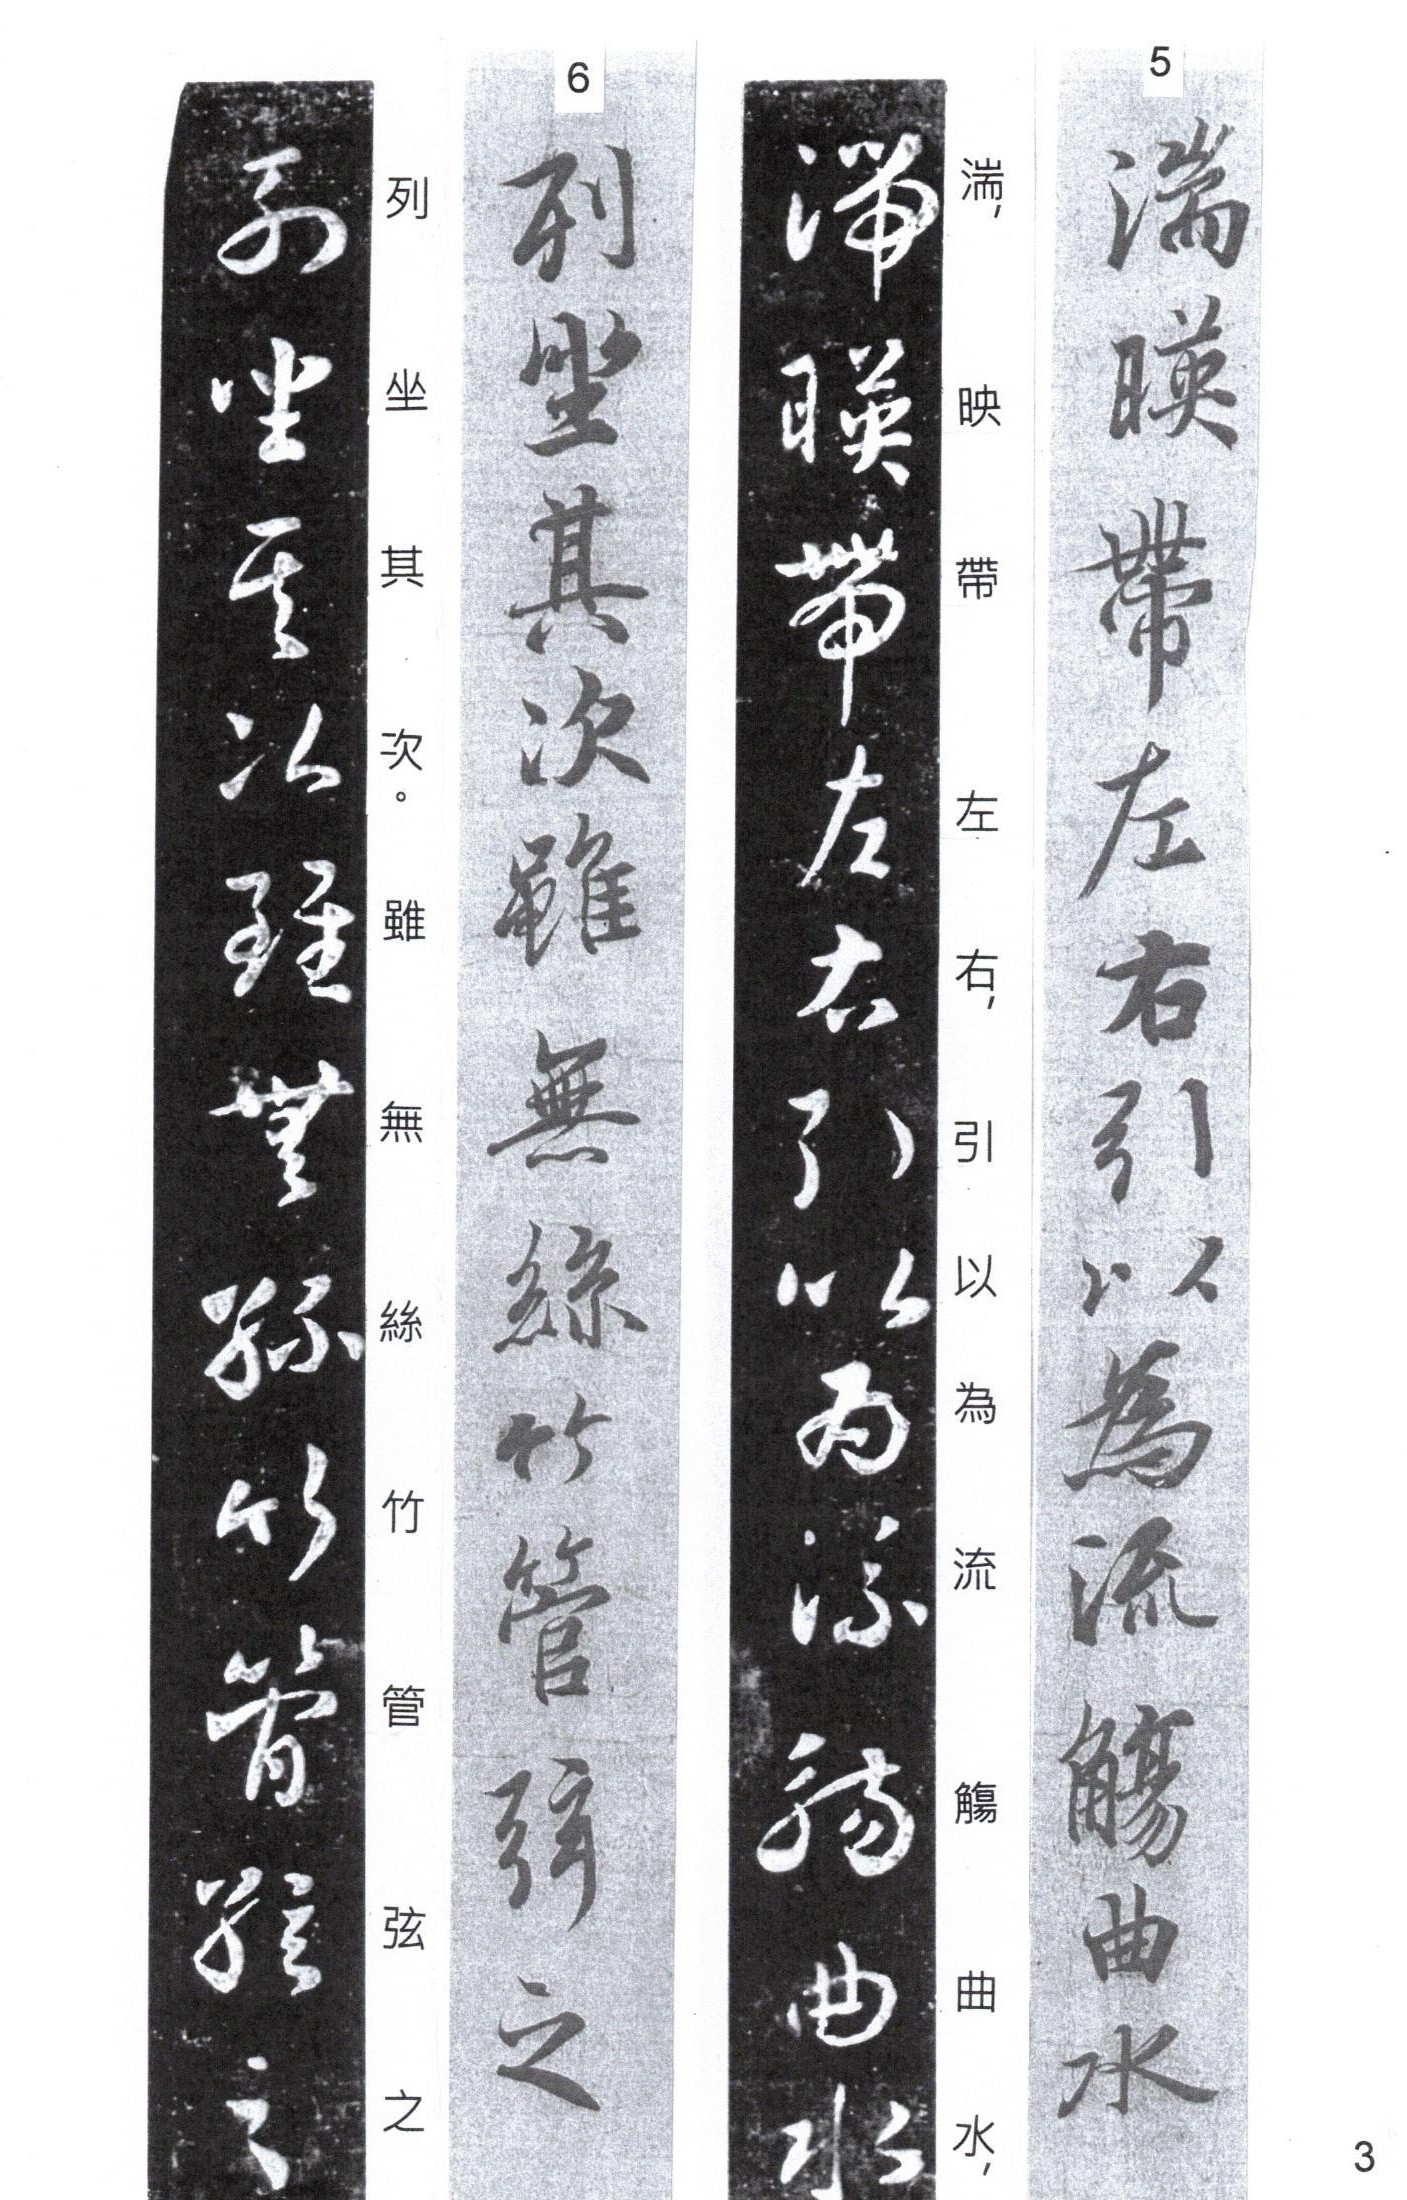 5
湍暎帶左右引以為流觴曲水
湍,映帶左右,引以為流觴曲水,
湍暎帶左右引以為流觴曲水
6
列坐其次雖無絲竹管弦之
列坐其次。雖無絲竹管弦之
列坐其次雖無絲竹管絃之
3